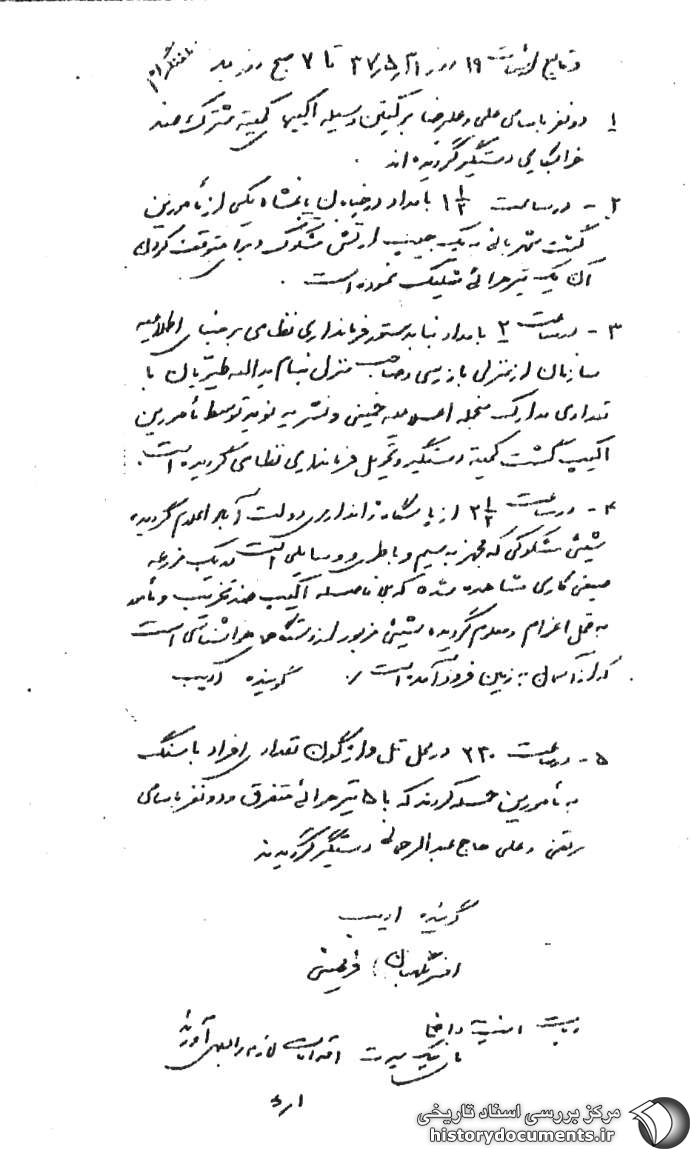 وقایع از ساعت ۱۹ روز ۳۷/۵/۳۱ تا ۷ صبح روز بعد
تلفنگرام
۱ دو نفر باسامی علی و علیرضا وسیله اکیپهای کمیته مشترک ضد
خرابکاری دستگیر گردیده اند .
۲ - در ساعت ۱ ۱/۲ بامداد در خیابان یکی از مأمورین
گشت شهربانی به یک جیپ ارتش مشکوک و برای متوقف کردن
آن یک تیر هوائی شلیک نموده است .
۳ - در ساعت ۲ بامداد بنا بدستور فرمانداری نظامی بر مبنای اطلاعیه
سازمان از منزلی بازرسی و صاحب منزل بنام یداله با
تعدادی مدارک منجمله اعلامیه خمینی و نشریه نوید توسط مأمورین
اکیپ گشت کمیته دستگیر و تحویل فرمانداری نظامی گردیده است .
۴ - در ساعت ۲ ۱/۲ از پاسگاه ژاندارمری دولت آباد اعلام گردیده
شیئی مشکوکی که مجهز به سیم و باطری و وسایلی است در یک مزرعه
صیفی کاری مشاهده شده که بلافاصله اکیپ ضد تخریب و
به محل اعزام و معلوم گردید شیئی مزبور از دستگاههای هواشناسی است
که از آسمان به زمین فرود آمده است . گوینده ادیب
۵ - در ساعت ۲۳۰ در محل تل واژگون تعدادی افراد با سنگ
به مأمورین حمله کردند که با ۵ تیر هوائی متفرق و دو نفر باسامی
مرتضی و علی حاج عبدالرحمانی دستگیر گردیدند
گوینده ادیب
افسر نگهبان
ریاست امنیت داخلی
اقدامات لازم را بعمل آورند
مرکز بررسی اسناد تاریخی
historydocuments.ir